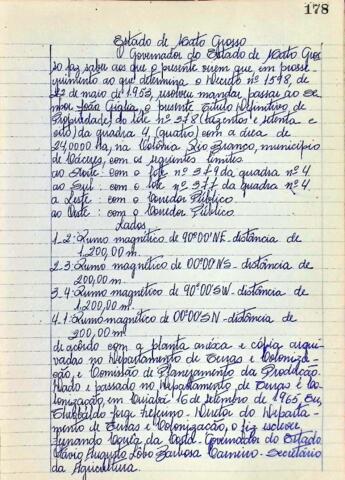 178
Estado de Mato Grosso
O Governador do Estado de Mato Gros
so faz saber aos que o presente virem que em prosse
guimento ao que determina o Decreto nº 1598, de
22 de maio de 1953, resolveu mandar passar ao Se
nhor João Giglia, o presente Título Definitivo, de
Propriedade do lote nº 378 (trezentos e setenta e
oito) da quadra 4 (quatro) com a área de
24,0000 ha, na Colônia Rio Branco, município
de Cáceres, com os seguintes limites
ao Norte: com o lote nº 379 da quadra nº 4.
ao Sul: com o lote nº 377 da quadra nº 4.
a Leste: com o Corredor Público.
ao Oeste: com o Corredor Público.
Lados
1-2: Rumo magnético de 90º00'NE - distância de
1.200,00 m.
2-3: Rumo magnético de 00º00'NS - distância de
200,00 m.
3-4: Rumo magnético de 90º00'SW - distância de
1.200,00 m.
4-1: Rumo magnético de 00º00'SN - distância de
200,00 m.
de acôrdo com a planta anéxa e cópia arqui-
vadas no Departamento de Terras e Coloniza-
ção, e Comissão de Planejamento da Produção.
Dado e passado no Departamento de Terras e Co-
lonização, em Cuiabá 16 de setembro de 1965 Eu,
Jorge - Diretor do Departa-
mento de Terras e Colonização, o fiz escrever
Fernando Corrêa da Costa - Governador do Estado
Augusto Lôbo Barbosa Carneiro - Secretário
da Agricultura.